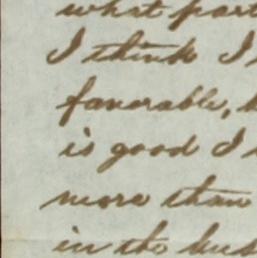 what part
I think I
favorable,
is good I
more than
in the bus